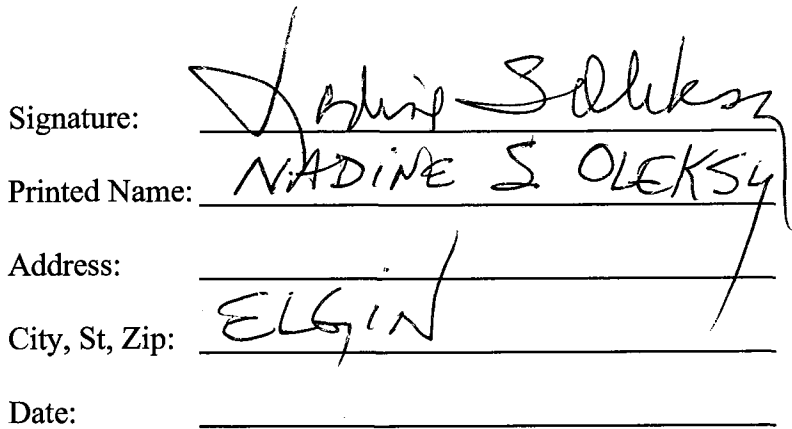 Signature: Nadine S Oleksy
Printed Name: NADINE S. OLEKSY
Address:
City, St, Zip: ELGIN
Date: